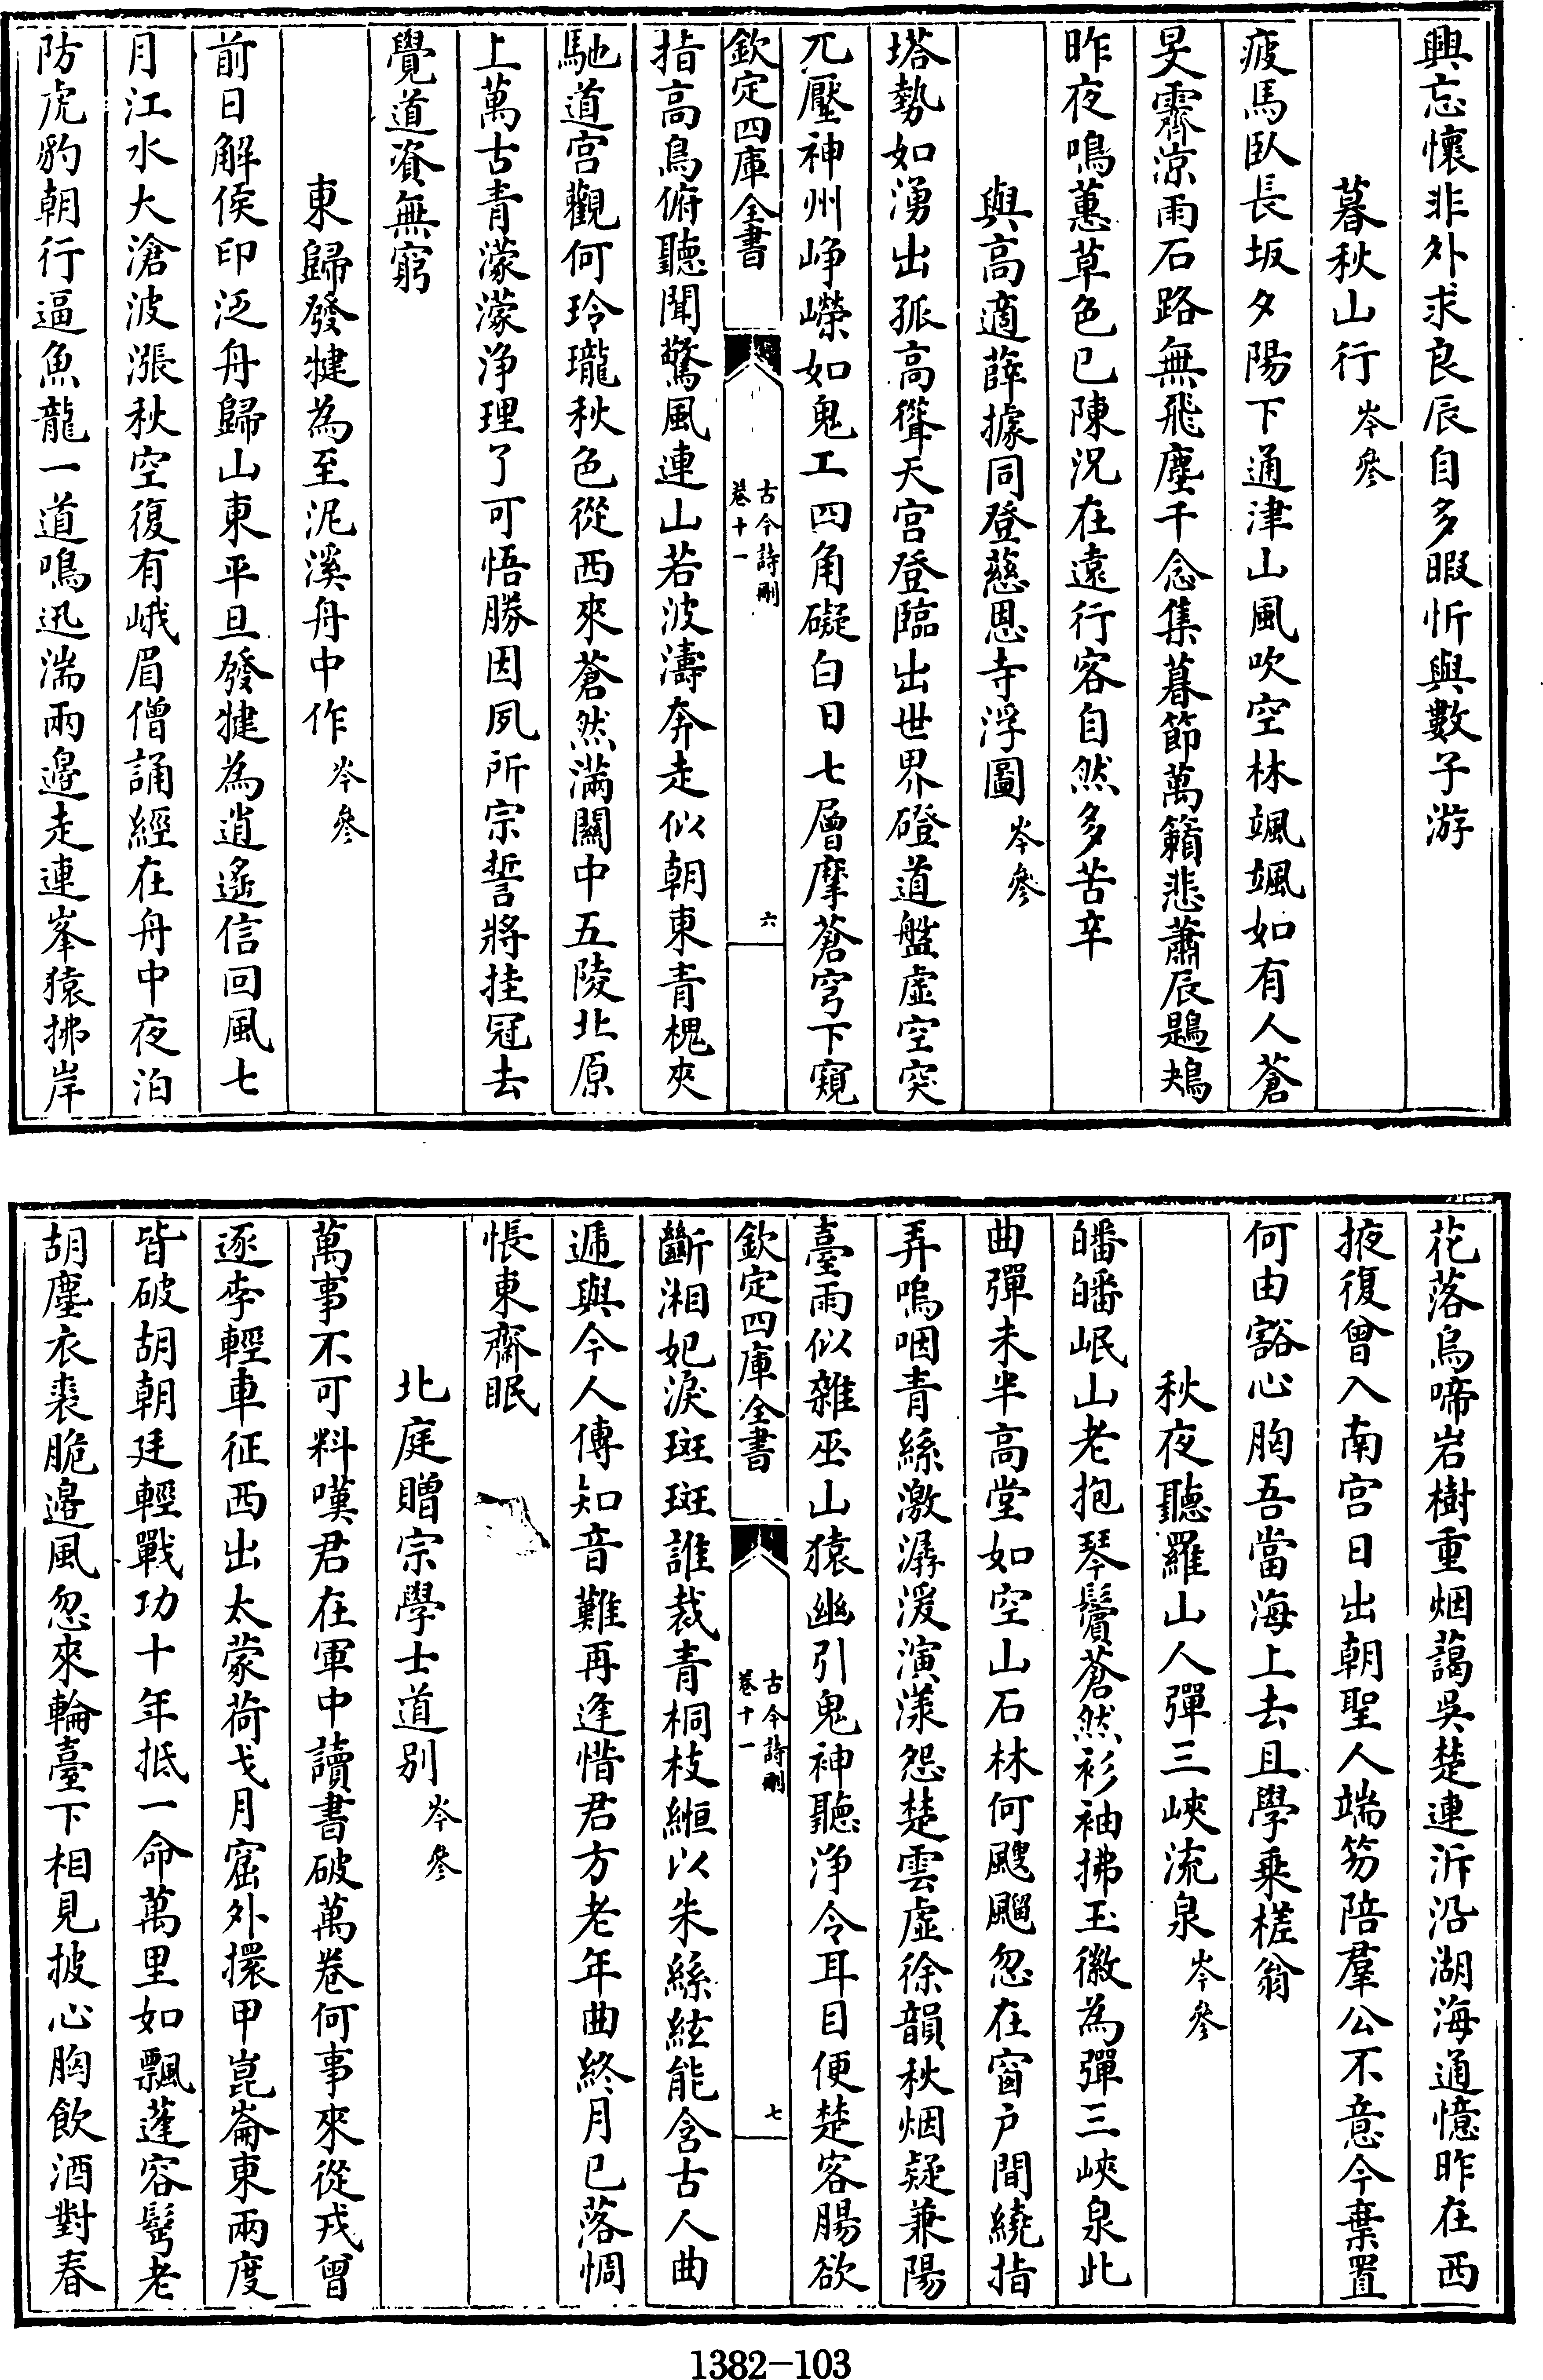 興忘懷非外求良辰自多暇忻與數子游
暮秋山行 岑參
疲馬臥長坂夕陽下通津山風吹空林颯颯如有人蒼
旻霽涼雨石路無飛塵千念集暮節萬籟悲蕭辰鶗鴂
昨夜鳴蕙草色已陳況在遠行客自然多苦辛
與高適薛據同登慈恩寺浮圖 岑參
塔勢如湧出孤高聳天宮登臨出世界磴道盤虛空突
兀壓神州崢嶸如鬼工四角礙白日七層摩蒼穹下窺
欽定四庫全書 古今詩刪 卷十一 六
指高鳥俯聽聞驚風連山若波濤奔走似朝東青槐夾
馳道宮觀何玲瓏秋色從西來蒼然滿關中五陵北原
上萬古青濛濛淨理了可悟勝因夙所宗誓將挂冠去
覺道資無窮
東歸發犍為至泥溪舟中作 岑參
前日解侯印泛舟歸山東平旦發犍為逍遙信回風七
月江水大滄波漲秋空復有峨眉僧誦經在舟中夜泊
防虎豹朝行逼魚龍一道鳴迅湍兩邊走連峯猿拂岸
花落鳥啼岩樹重烟藹吳楚連泝沿湖海通憶昨在西
掖復曾入南宮日出朝聖人端笏陪羣公不意今棄置
何由豁心胸吾當海上去且學乘槎翁
秋夜聽羅山人彈三峽流泉 岑參
皤皤岷山老抱琴鬢蒼然衫袖拂玉徽為彈三峽泉此
曲彈未半高堂如空山石林何颼飀忽在窗户間繞指
弄嗚咽青絲激潺湲演漾怨楚雲虛徐韻秋烟疑兼陽
臺雨似雜巫山猿幽引鬼神聽淨令耳目便楚客腸欲
欽定四庫全書 古今詩刪 卷十一 七
斷湘妃淚斑斑誰裁青桐枝緪以朱絲絃能含古人曲
遞與今人傳知音難再逢惜君方老年曲終月已落惆
悵東齋眠
北庭贈宗學士道别 岑參
萬事不可料嘆君在軍中讀書破萬卷何事來從戎曾
逐李輕車征西出太蒙荷戈月窟外擐甲崑崙東兩度
皆破胡朝廷輕戰功十年抵一命萬里如飄蓬容髩老
胡塵衣裘脆邊風忽來輪臺下相見披心胸飲酒對春
1382-103